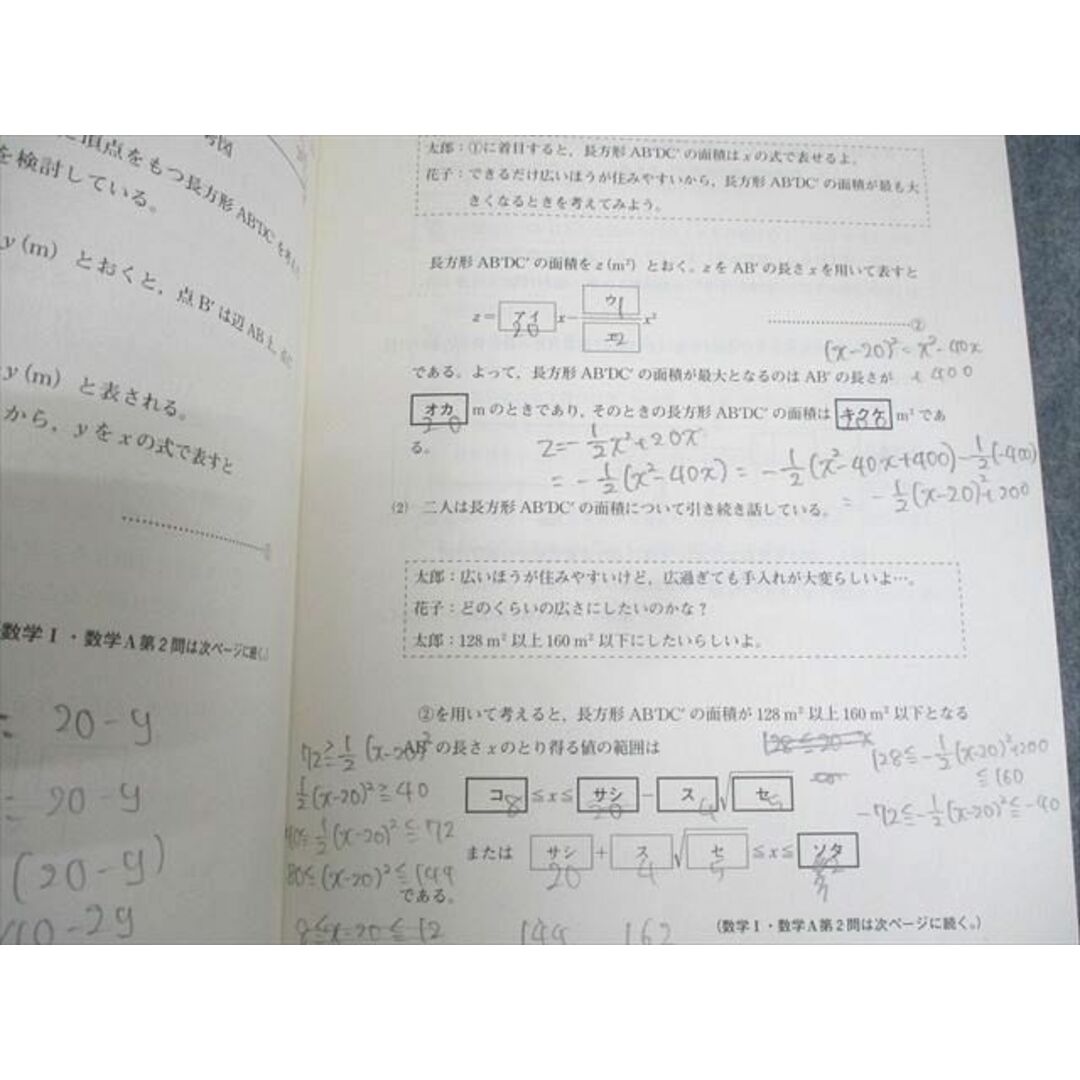 考図
頂点をもつ長方形AB'DC'を考え
を検討している。
y(m) とおくと，点B'は辺AB上，
y(m) と表される。
から，yをxの式で表すと
数学Ⅰ・数学A第2問は次ページに続く。
= 20-y
= 20-y
(20-y)
40-2y
太郎：①に着目すると，長方形AB'DC'の面積はxの式で表せるよ。
花子：できるだけ広いほうが住みやすいから，長方形AB'DC'の面積が最も大
きくなるときを考えてみよう。
長方形AB'DC'の面積をz(m²) とおく。zをAB'の長さxを用いて表すと
z= アイ 20 x − ウ 1 / エ 2 x² ……②
(x-20)²=x²-40x
+400
である。よって，長方形AB'DC'の面積が最大となるのはAB'の長さが
オカ 20 mのときであり，そのときの長方形AB'DC'の面積は キクケ m²であ
る。
z=-1/2x²+20x
=-1/2(x²-40x) = -1/2(x²-40x+400)-1/2(-400)
= -1/2(x-20)²+200
(2) 二人は長方形AB'DC'の面積について引き続き話している。
太郎：広いほうが住みやすいけど，広過ぎても手入れが大変らしいよ…。
花子：どのくらいの広さにしたいのかな？
太郎：128 m²以上160 m²以下にしたいらしいよ。
②を用いて考えると，長方形AB'DC'の面積が128 m²以上160 m²以下となる
AB'の長さxのとり得る値の範囲は
72≧1/2(x-20)²
1/2(x-20)²≧40
40≦1/2(x-20)²≦72
80≦(x-20)²≦144
8≦x-20≦12
128≦-1/2(x-20)²+200
≦160
-72≦-1/2(x-20)²≦-40
コ 8 ≦x≦ サシ 20 − ス 4 √ セ 5
または サシ 20 + ス 4 √ セ 5 ≦x≦ ソタ
である。
144 162
(数学Ⅰ・数学A第2問は次ページに続く。)